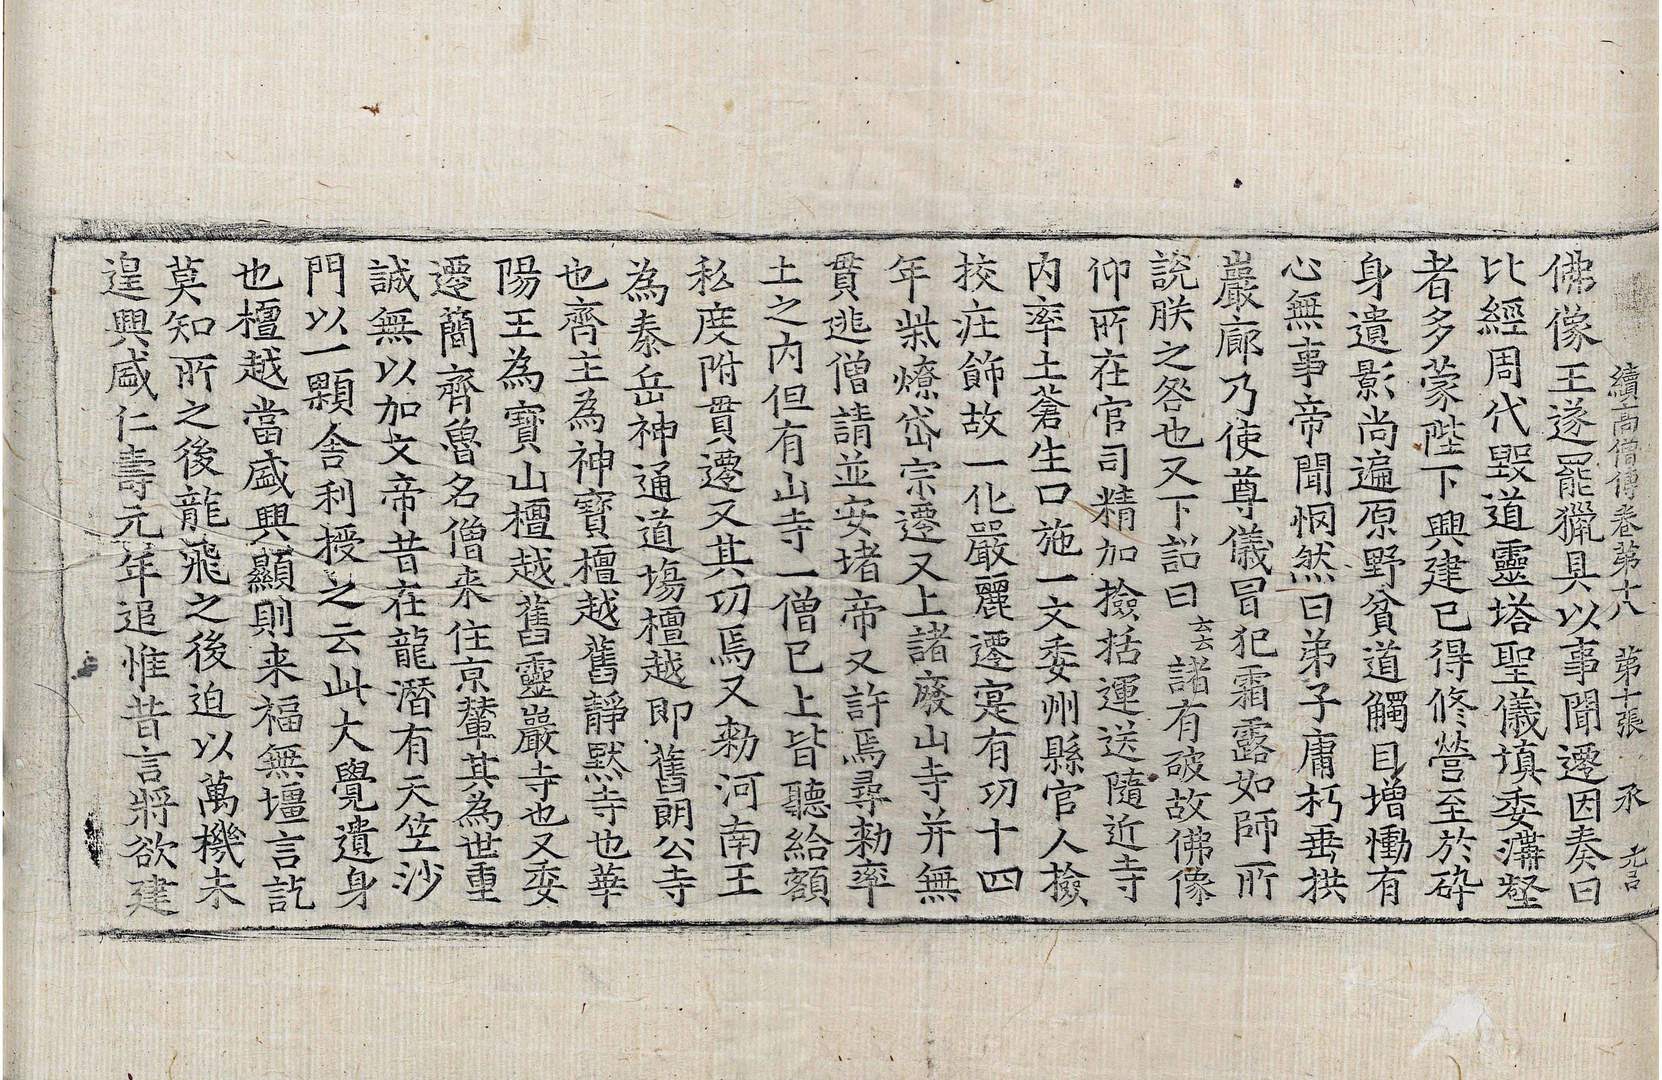 續高僧傳卷第十八 第十張 承
佛像王遂罷獵具以事聞遷因奏曰
比經周代毀道靈塔聖儀填委溝壑
者多蒙陛下興建已得修營至於碎
身遺影尚遍原野貧道觸目增慟有
心無事帝聞惘然曰弟子庸朽垂拱
巖廊乃使尊儀冒犯霜露如師所
說朕之咎也又下詔曰云云諸有破故佛像
仰所在官司精加撿括運送隨近寺
内率土蒼生口施一文委州縣官人撿
挍疘飾故一化嚴麗遷寔有功十四
年柴燎岱宗遷又上諸廢山寺并無
貫逃僧請並安堵帝又許焉尋勑率
土之内但有山寺一僧已上皆聽給額
私度附貫遷又其功焉又勑河南王
為泰岳神通道場檀越即舊朗公寺
也齊主為神寶檀越舊靜默寺也華
陽王為寶山檀越舊靈巖寺也又委
遷簡齊魯名僧来住京輦其為世重
誠無以加文帝昔在龍潛有天竺沙
門以一顆舍利授之云此大覺遺身
也檀越當盛興顯則来福無壃言訖
莫知所之後龍飛之後迫以萬機未
遑興盛仁壽元年追惟昔言將欲建